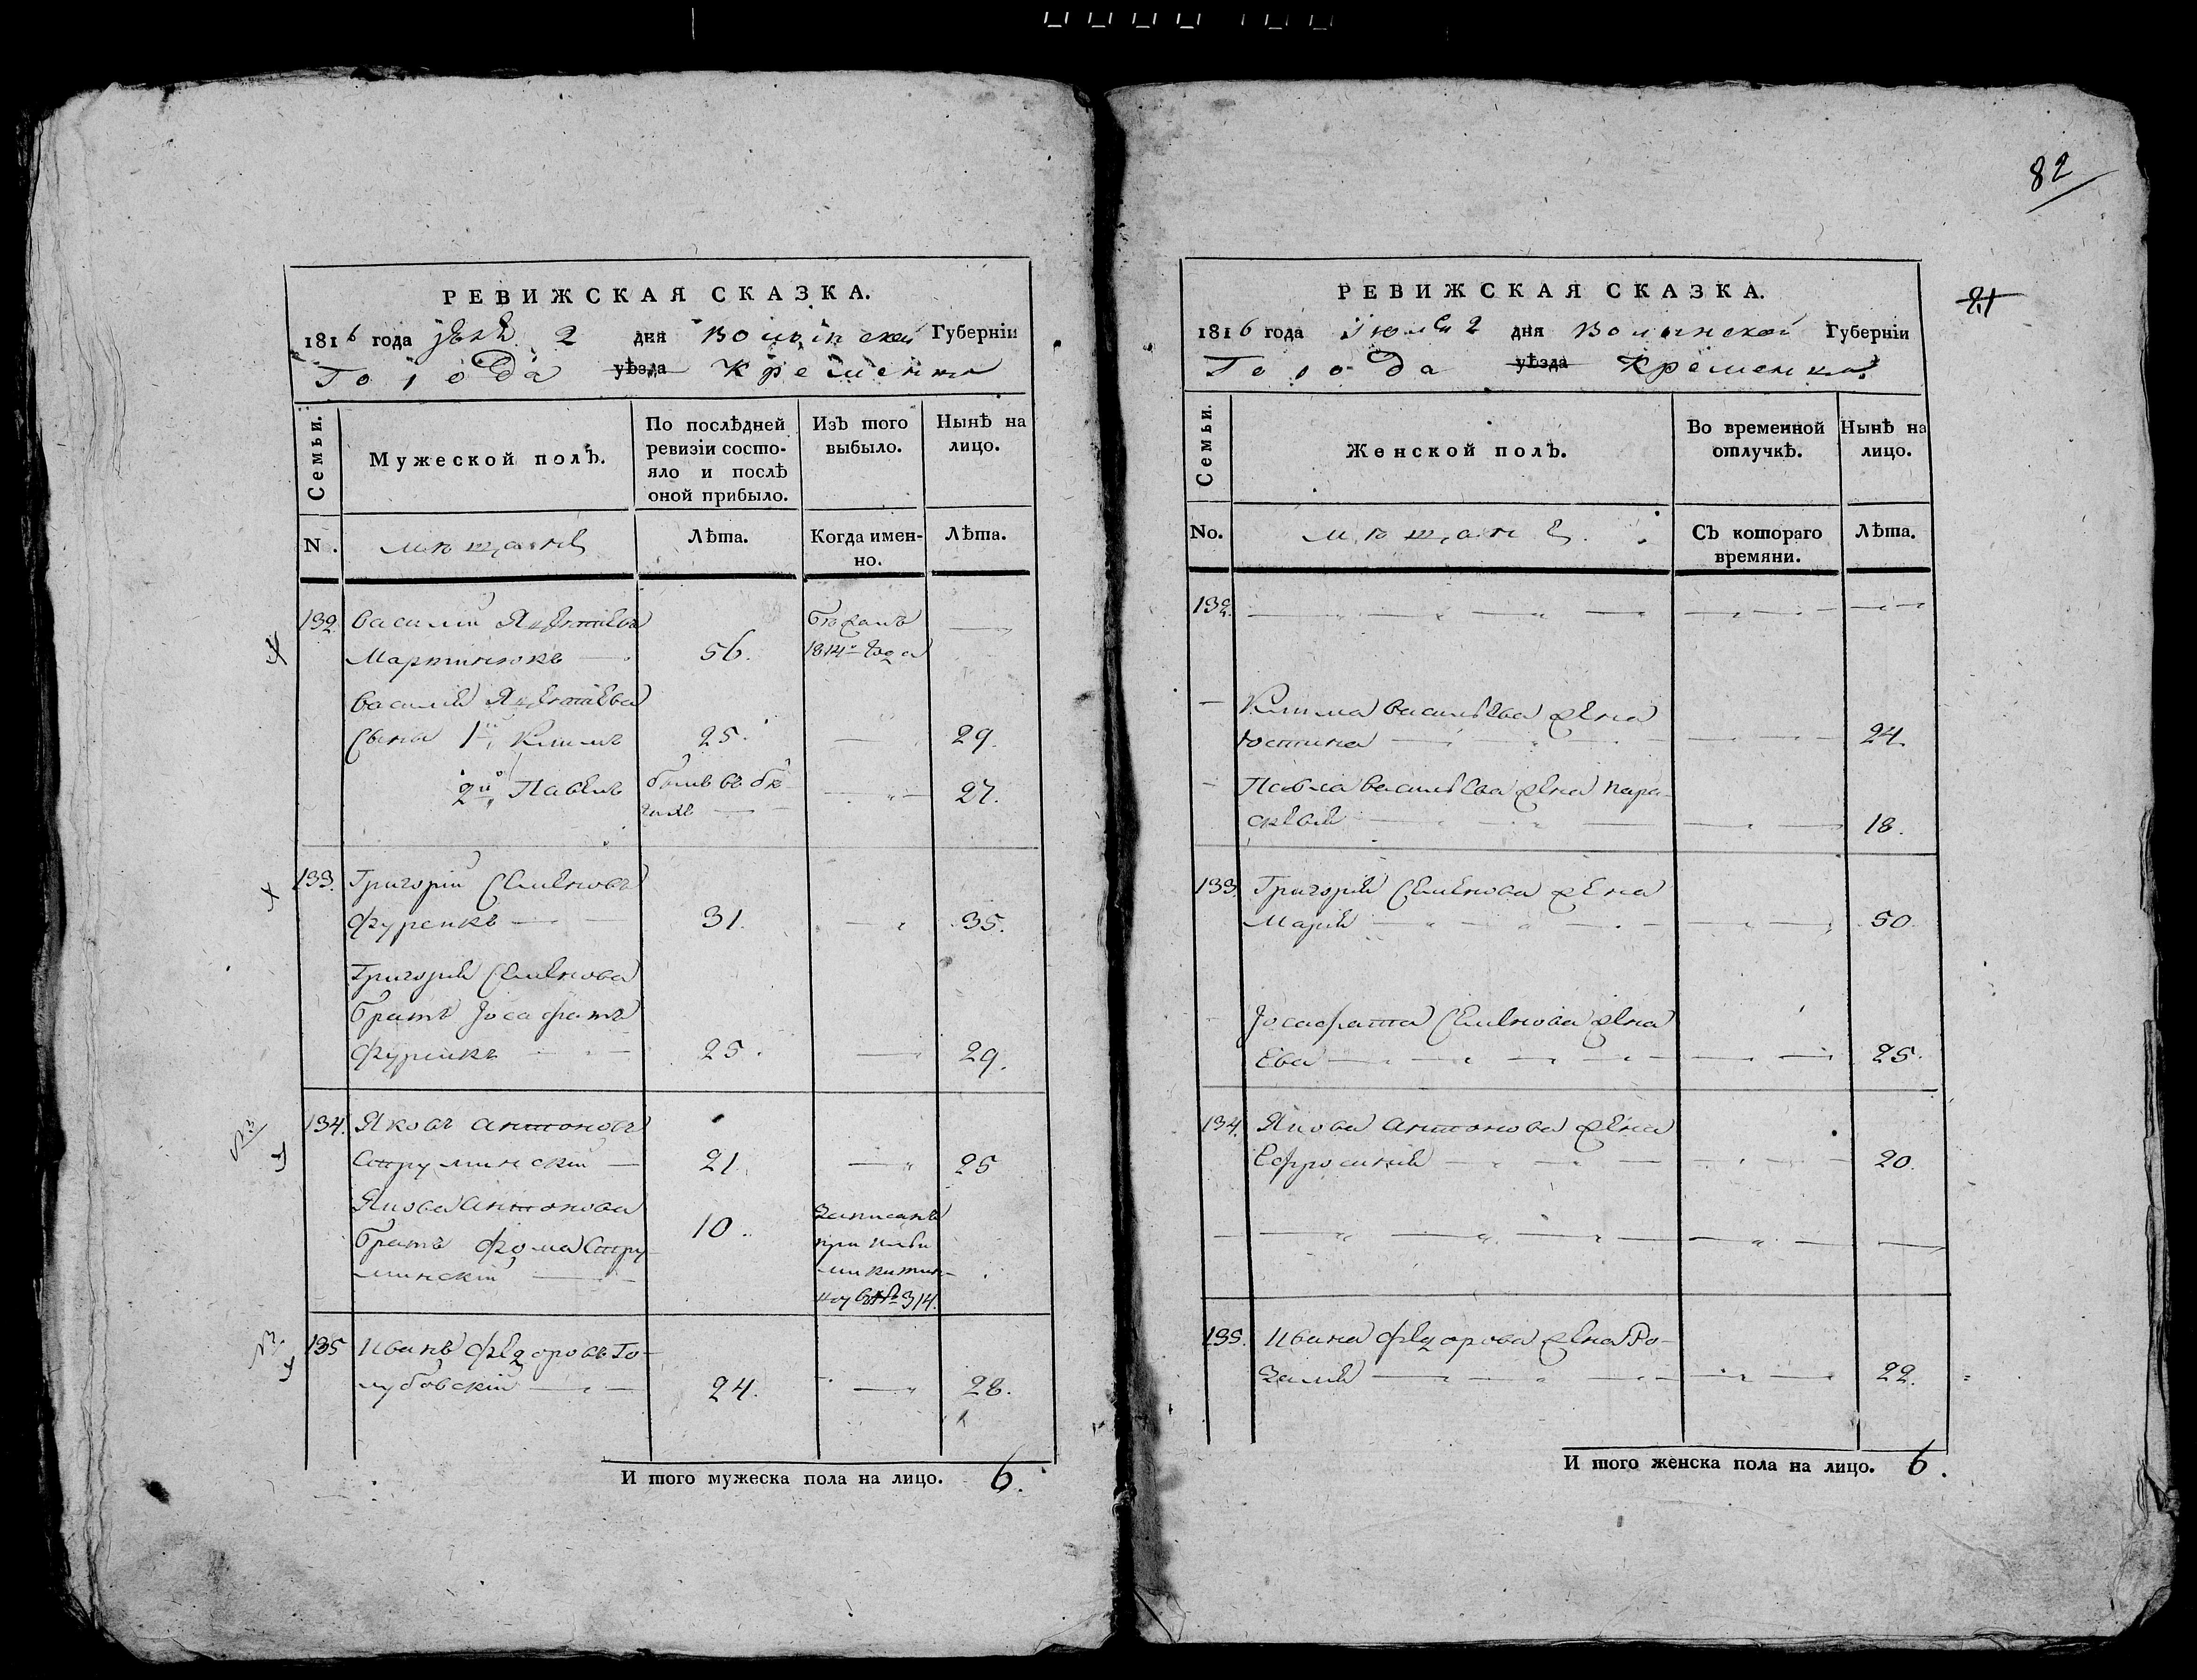 82
РЕВИЖСКАЯ СКАЗКА.
1816 года 2 дня Волынской Губернїи
Города уѣзда Кременца
Семьи.
Мужеской полъ.
По послѣдней ревизїи состояло и послѣ оной прибыло.
Изъ того выбыло.
Нынѣ на лицо.
N.
мѣщане
Лѣта.
Когда именно.
Лѣта.
132. Василий
Мартинюкъ — 56. 1814 года —
Василия
Сына 1й Климъ 25. — 29.
2й Павелъ — 27.
133. Григорий Семеновъ
— 31. — 35.
Григория Семенова
братъ Иосафатъ
— 25. — 29.
134. Яковъ Антоновъ
Струминский — 21. — 25
Якова Антонова 10. Записанъ
братъ Фома Стру- при
минский —
№ 314.
135 Иванъ Федоровъ Го-
лубовский — 24. — 28.
И того мужеска пола на лицо. 6.
21
РЕВИЖСКАЯ СКАЗКА.
1816 года Июля 2 дня Волынской Губернїи
Города уѣзда Кременца
Семьи.
Женской полъ.
Во временной отлучкѣ.
Нынѣ на лицо.
No.
мѣщане
Съ котораго времяни.
Лѣта.
132.
— Клима Васильева жена
Юстина — 24.
— Павла Васильева жена Пара-
скевия — 18.
133. Григория Семенова жена
Мария — 50.
— Иосафата Семенова жена
Ева — 25.
134. Якова Антонова жена
Ефросиния — 20.
135. Ивана Федорова жена Ро-
залия — 22.
И того женска пола на лицо. 6.